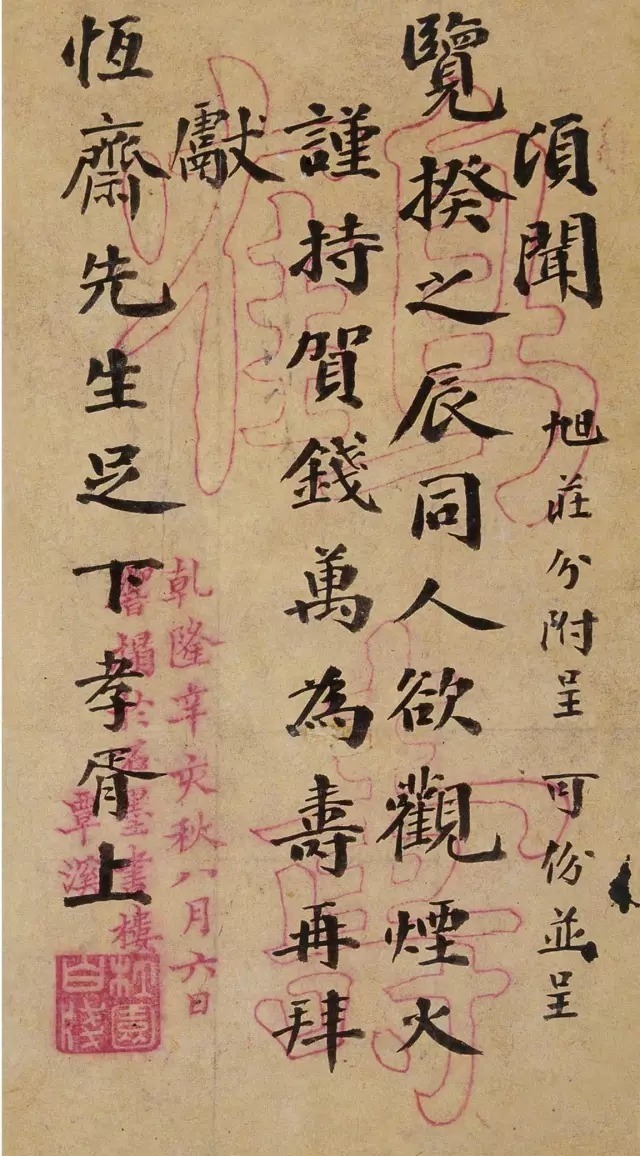 頃聞
旭莊分附呈 可份並呈
覽揆之辰同人欲觀煙火
謹持賀錢萬為壽再拜
獻
恆齋先生足下孝胥上
乾隆辛亥秋八月六日
響搨於石墨書樓
覃溪